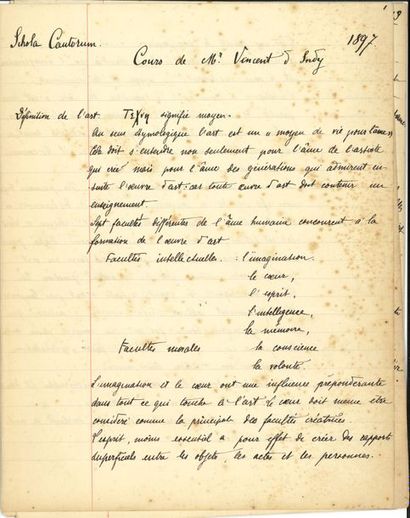 Schola Cantorum.
1897
Cours de Mr Vincent d'Indy
Définition de l'art. Τεχνη signifie moyen.
Au sens étymologique l'art est un « moyen de vie pour l'âme »
Cela doit s'entendre non seulement pour l'âme de l'artiste
qui crée mais pour l'âme des générations qui admirent en-
suite l'œuvre d'art: car toute œuvre d'art doit contenir un
enseignement.
Sept facultés différentes de l'âme humaine concourent à la
formation de l'œuvre d'art
Facultés intellectuelles : l'imagination.
le cœur,
l'esprit,
l'intelligence,
la mémoire,
Facultés morales la conscience
la volonté.
L'imagination et le cœur ont une influence prépondérante
dans tout ce qui touche à l'art le cœur doit même être
considéré comme la principale des facultés créatrices.
L'esprit, moins essentiel a pour effet de créer des rapports
superficiels entre les objets, les actes et les personnes.